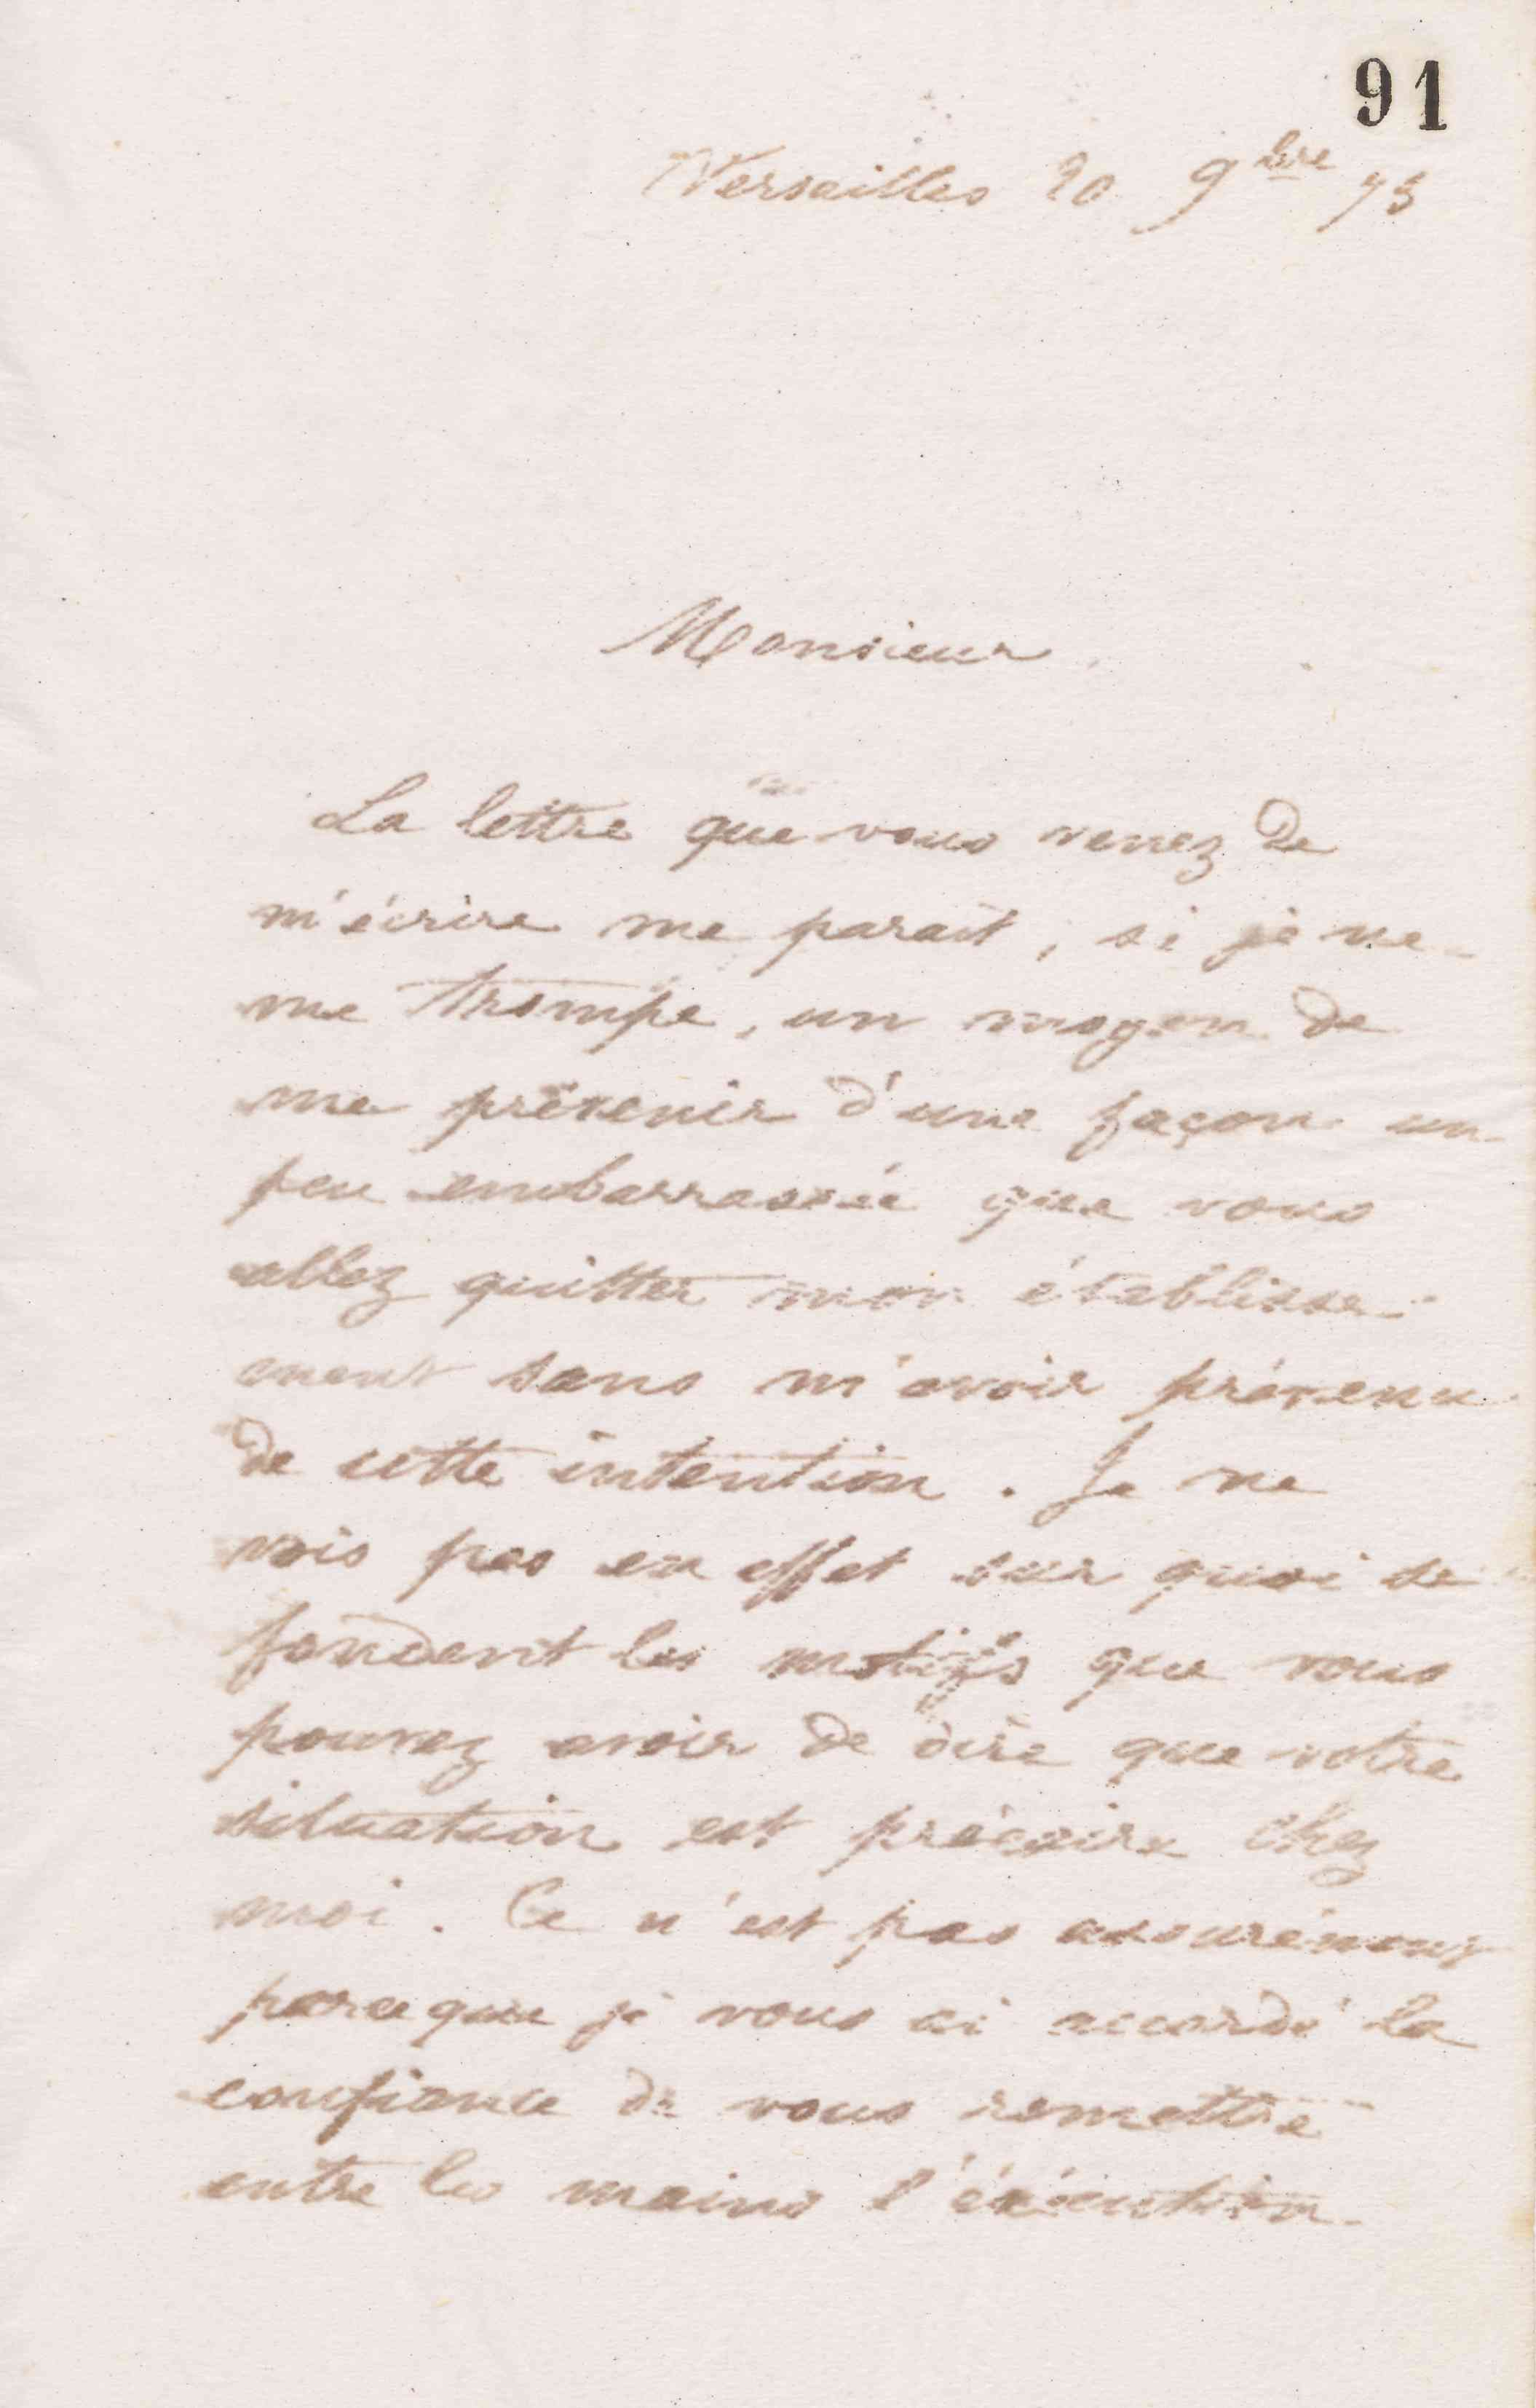 91
Versailles 20 9bre 75
Monsieur
La lettre que vous venez de
m'écrire me parait, si je ne
me trompe, un moyen de
me prévenir d'une façon un
peu embarrassée que vous
allez quitter mon établisse-
ment sans m'avoir prévenu
de cette intention. Je ne
vois pas en effet sur quoi se
fondent les motifs que vous
pouvez avoir de dire que votre
situation est précaire chez
moi. Ce n'est pas assurément
parceque je vous ai accordé la
confiance de vous remettre
entre les mains l'exécution